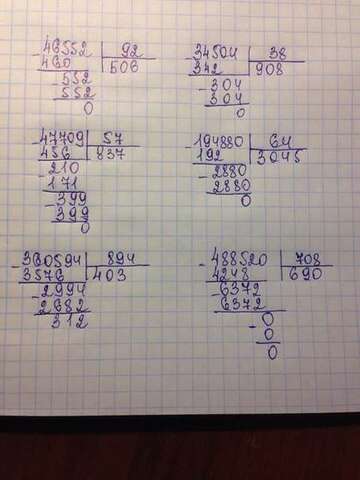 -46552 | 92
460 | 506
-552
552
0
-34504 | 38
342 | 908
-304
304
0
-47709 | 57
456 | 837
-210
171
-399
399
0
-194880 | 64
192 | 3045
-2880
2880
0
-360594 | 894
3576 | 403
-2994
2682
312
-488520 | 708
4248 | 690
6372
6372
-0
0
0